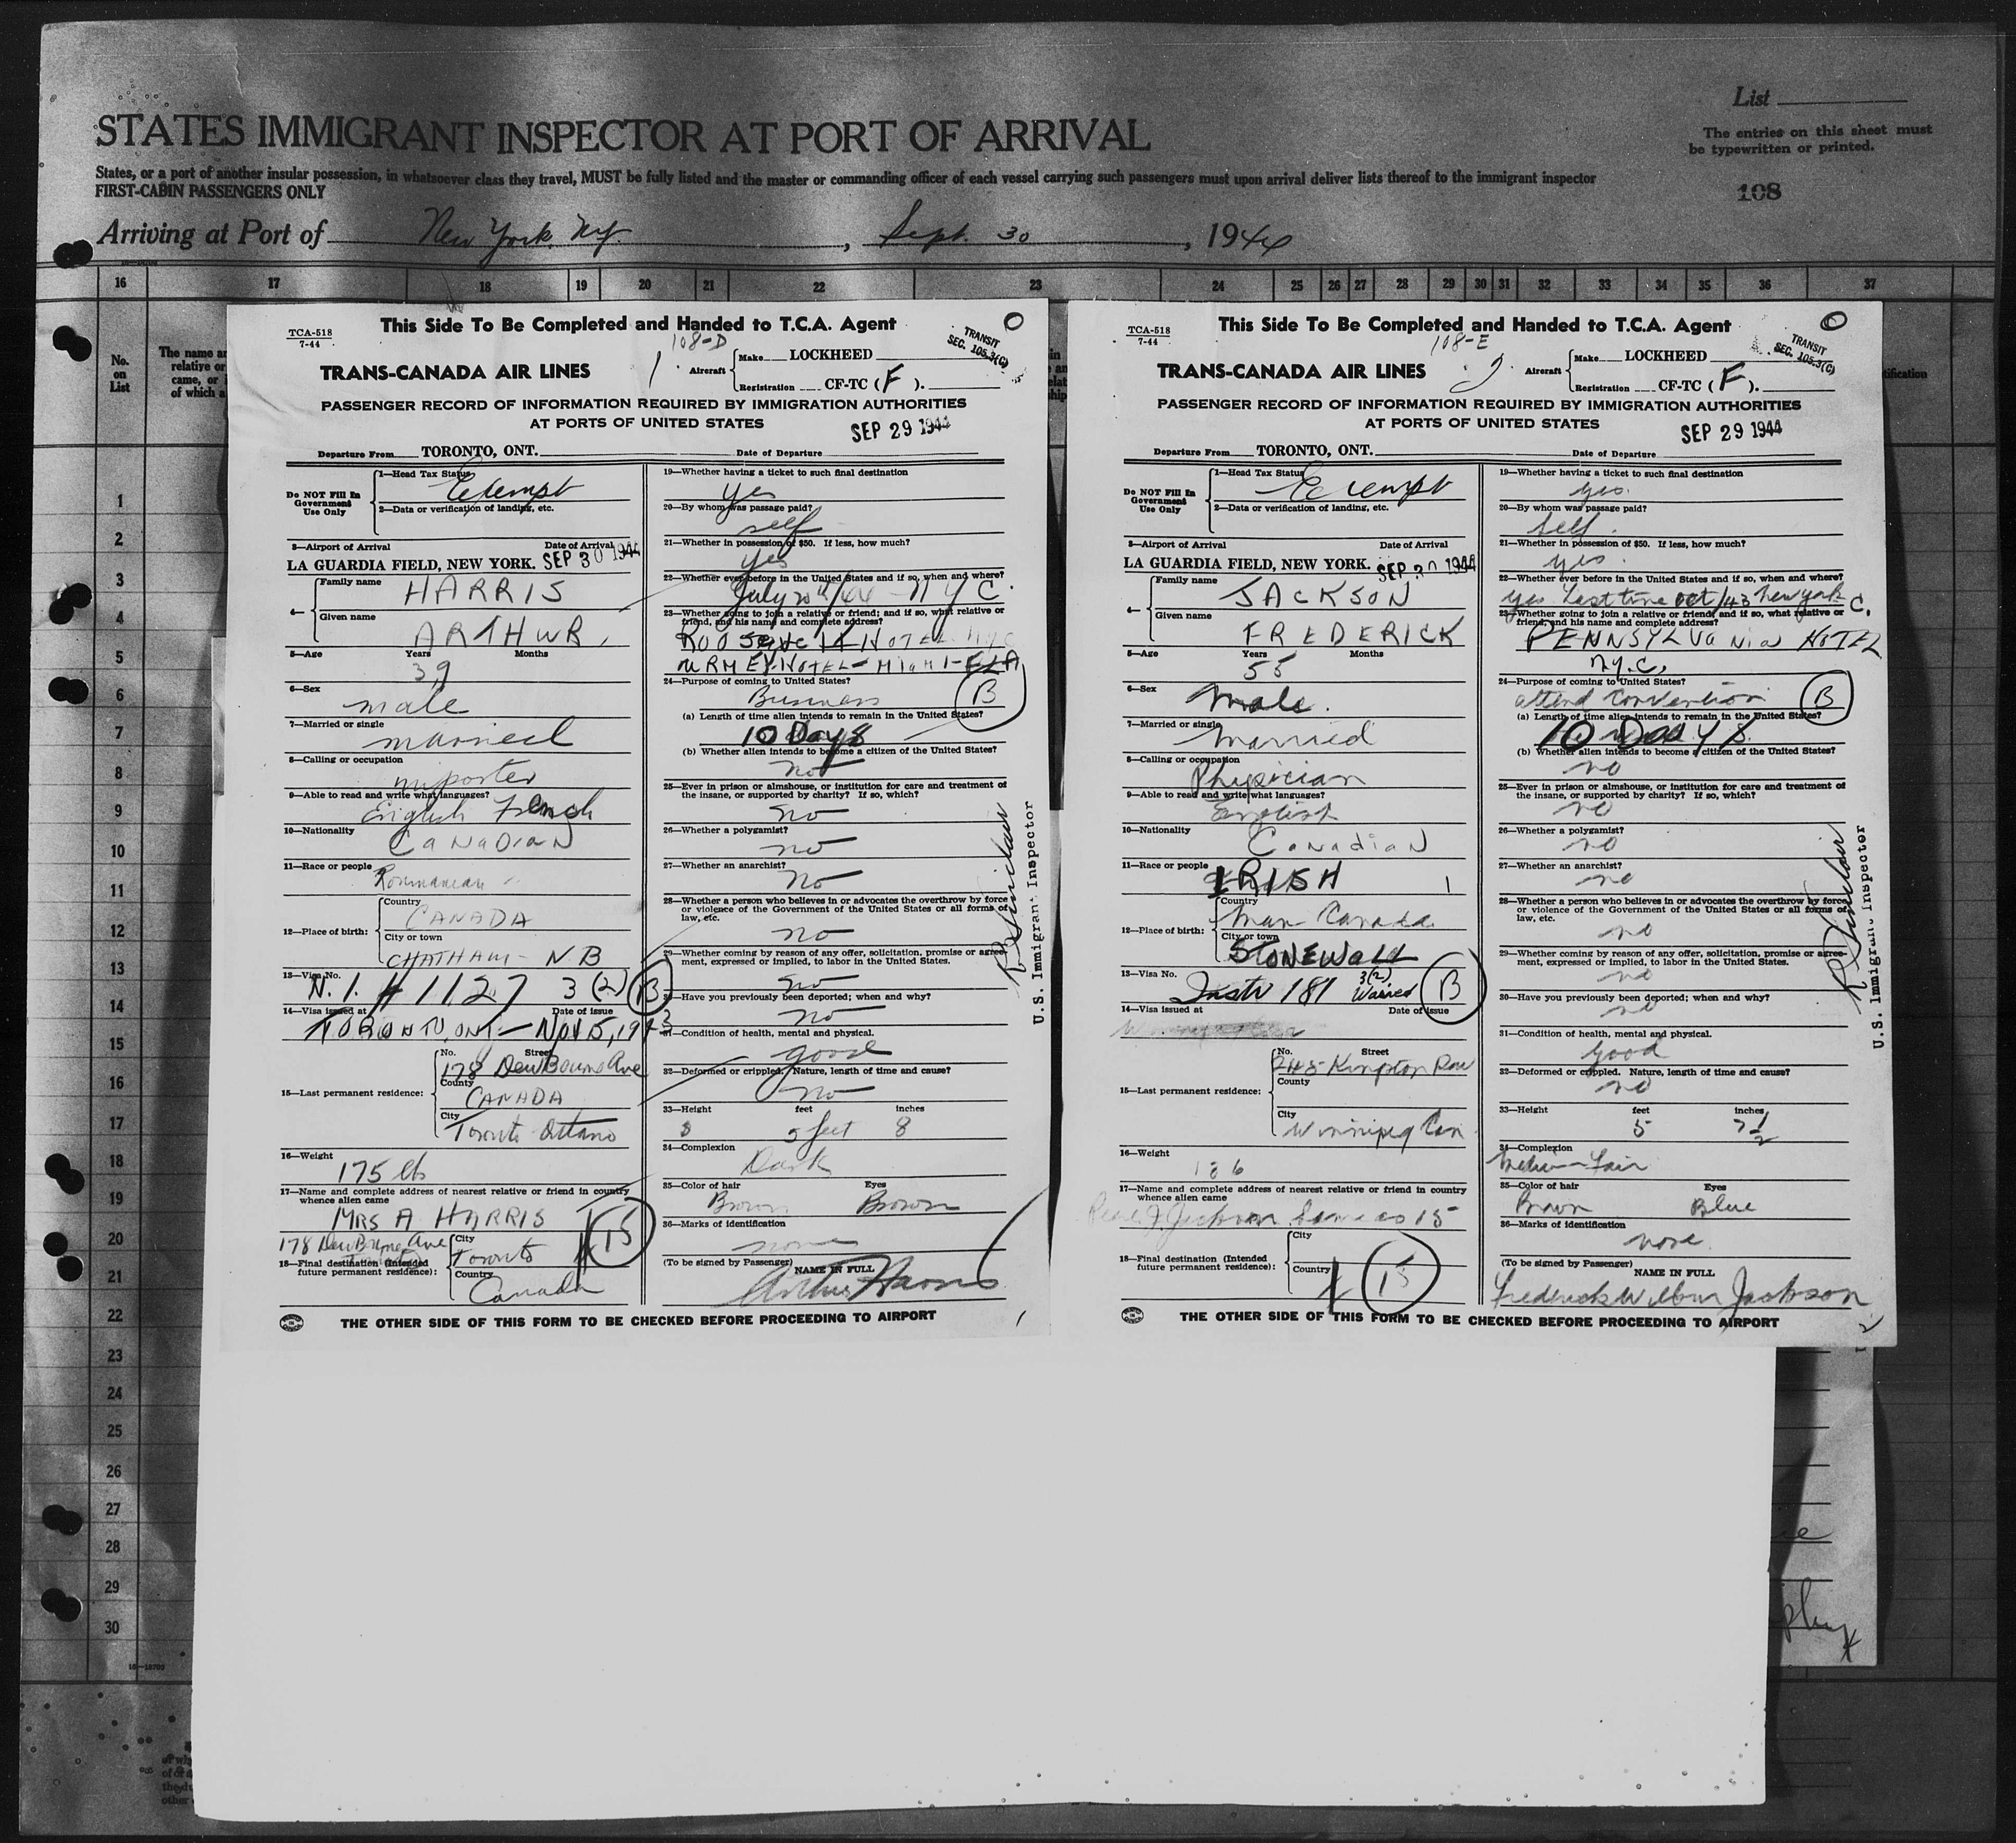 List
STATES IMMIGRANT INSPECTOR AT PORT OF ARRIVAL
The entries on this sheet must
be typewritten or printed.
States, or a port of another insular possession, in whatsoever class they travel, MUST be fully listed and the master or commanding officer of each vessel carrying such passengers must upon arrival deliver lists thereof to the immigrant inspector
FIRST-CABIN PASSENGERS ONLY
108
Arriving at Port of New York, Ny. , Sept. 30 , 1944
16 17 18 19 20 21 22 23 24 25 26 27 28 29 30 31 32 33 34 35 36 37
No.
on
List
The name
relative or
came, or
of which a
1
2
3
4
5
6
7
8
9
10
11
12
13
14
15
16
17
18
19
20
21
22
23
24
25
26
27
28
29
30
TCA-518
7-44
This Side To Be Completed and Handed to T.C.A. Agent
108-D
TRANSIT
SEC. 105.3(C)
TRANS-CANADA AIR LINES
1.
Aircraft
Make LOCKHEED
Registration CF-TC (F).
PASSENGER RECORD OF INFORMATION REQUIRED BY IMMIGRATION AUTHORITIES
AT PORTS OF UNITED STATES
SEP 29 1944
Departure From TORONTO, ONT. Date of Departure
Do NOT Fill In
Government
Use Only
1—Head Tax Status
Exempt
2—Data or verification of landing, etc.
3—Airport of Arrival Date of Arrival
LA GUARDIA FIELD, NEW YORK. SEP 30 1944
4—
Family name
HARRIS
Given name
ARTHUR
5—Age Years Months
39
6—Sex
male
7—Married or single
married
8—Calling or occupation
importer
9—Able to read and write what languages?
English French
10—Nationality
CANADIAN
11—Race or people
Roumanian
12—Place of birth:
Country
CANADA
City or town
CHATHAM - NB
13—Visa No.
N.I. # 1127 3(2) B
14—Visa issued at Date of issue
TORONTO, ONT. — Nov 5, 1943
15—Last permanent residence:
No. Street
178 DewBourne Ave
County
CANADA
City
Toronto Ontario
16—Weight
175 lb
17—Name and complete address of nearest relative or friend in country
whence alien came
MRS A HARRIS
178 DewBourne Ave
18—Final destination (Intended
future permanent residence):
City
Toronto
Country
Canada
15
19—Whether having a ticket to such final destination
yes
20—By whom was passage paid?
self
21—Whether in possession of $50. If less, how much?
yes
22—Whether ever before in the United States and if so, when and where?
July 20th/44 - NYC.
23—Whether going to join a relative or friend; and if so, what relative or
friend, and his name and complete address?
HOTEL NYC
HOTEL - MIAMI - FLA
24—Purpose of coming to United States?
Business
B
(a) Length of time alien intends to remain in the United States?
10 Days
(b) Whether alien intends to become a citizen of the United States?
no
25—Ever in prison or almshouse, or institution for care and treatment of
the insane, or supported by charity? If so, which?
no
26—Whether a polygamist?
no
27—Whether an anarchist?
no
28—Whether a person who believes in or advocates the overthrow by force
or violence of the Government of the United States or all forms of
law, etc.
no
29—Whether coming by reason of any offer, solicitation, promise or agree-
ment, expressed or implied, to labor in the United States.
no
30—Have you previously been deported; when and why?
no
31—Condition of health, mental and physical.
good
32—Deformed or crippled. Nature, length of time and cause?
no
33—Height feet inches
5 feet 8
34—Complexion
Dark
35—Color of hair Eyes
Brown Brown
36—Marks of identification
none
(To be signed by Passenger) NAME IN FULL
Arthur Harris
R Sinclair
U.S. Immigrant Inspector
THE OTHER SIDE OF THIS FORM TO BE CHECKED BEFORE PROCEEDING TO AIRPORT
TCA-518
7-44
This Side To Be Completed and Handed to T.C.A. Agent
108-E
TRANSIT
SEC. 105.3(C)
TRANS-CANADA AIR LINES
2.
Aircraft
Make LOCKHEED
Registration CF-TC (F).
PASSENGER RECORD OF INFORMATION REQUIRED BY IMMIGRATION AUTHORITIES
AT PORTS OF UNITED STATES
SEP 29 1944
Departure From TORONTO, ONT. Date of Departure
Do NOT Fill In
Government
Use Only
1—Head Tax Status
Exempt
2—Data or verification of landing, etc.
3—Airport of Arrival Date of Arrival
LA GUARDIA FIELD, NEW YORK. SEP 30 1944
4—
Family name
JACKSON
Given name
FREDERICK
5—Age Years Months
55
6—Sex
Male.
7—Married or single
Married
8—Calling or occupation
Physician
9—Able to read and write what languages?
English
10—Nationality
Canadian
11—Race or people
IRISH
12—Place of birth:
Country
Man - Canada
City or town
STONEWALL
13—Visa No.
Instr 181 3(2) Waived B
14—Visa issued at Date of issue
15—Last permanent residence:
No. Street
Kingston Row
County
City
Winnipeg Can
16—Weight
186
17—Name and complete address of nearest relative or friend in country
whence alien came
Jackson Same as 15
18—Final destination (Intended
future permanent residence):
City
Country
15
19—Whether having a ticket to such final destination
yes.
20—By whom was passage paid?
Self.
21—Whether in possession of $50. If less, how much?
yes.
22—Whether ever before in the United States and if so, when and where?
yes last time Oct/43 New York C.
23—Whether going to join a relative or friend; and if so, what relative or
friend, and his name and complete address?
PENNSYLVania HOTEL
N.Y.C.
24—Purpose of coming to United States?
attend Convention
B
(a) Length of time alien intends to remain in the United States?
10 Days.
(b) Whether alien intends to become a citizen of the United States?
no
25—Ever in prison or almshouse, or institution for care and treatment of
the insane, or supported by charity? If so, which?
no
26—Whether a polygamist?
no
27—Whether an anarchist?
no
28—Whether a person who believes in or advocates the overthrow by force
or violence of the Government of the United States or all forms of
law, etc.
no
29—Whether coming by reason of any offer, solicitation, promise or agree-
ment, expressed or implied, to labor in the United States.
no
30—Have you previously been deported; when and why?
no
31—Condition of health, mental and physical.
Good
32—Deformed or crippled. Nature, length of time and cause?
no
33—Height feet inches
5 7½
34—Complexion
Medium Fair
35—Color of hair Eyes
Brown Blue
36—Marks of identification
none
(To be signed by Passenger)
NAME IN FULL
Frederick Wilbur Jackson
R Sinclair
U.S. Immigrant Inspector
THE OTHER SIDE OF THIS FORM TO BE CHECKED BEFORE PROCEEDING TO AIRPORT